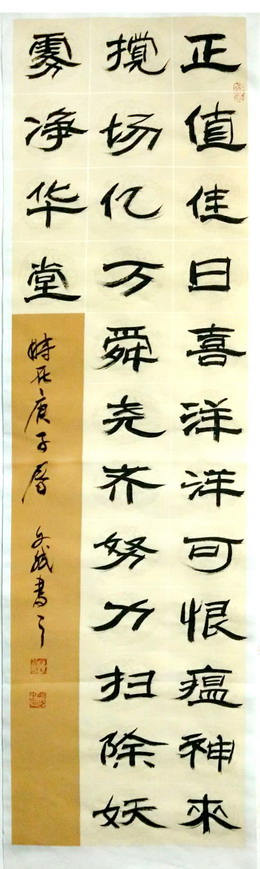 正值佳日喜洋洋可恨瘟神来
搅场亿万舜尧齐努力扫除妖
雾净华堂
时在庚子
书